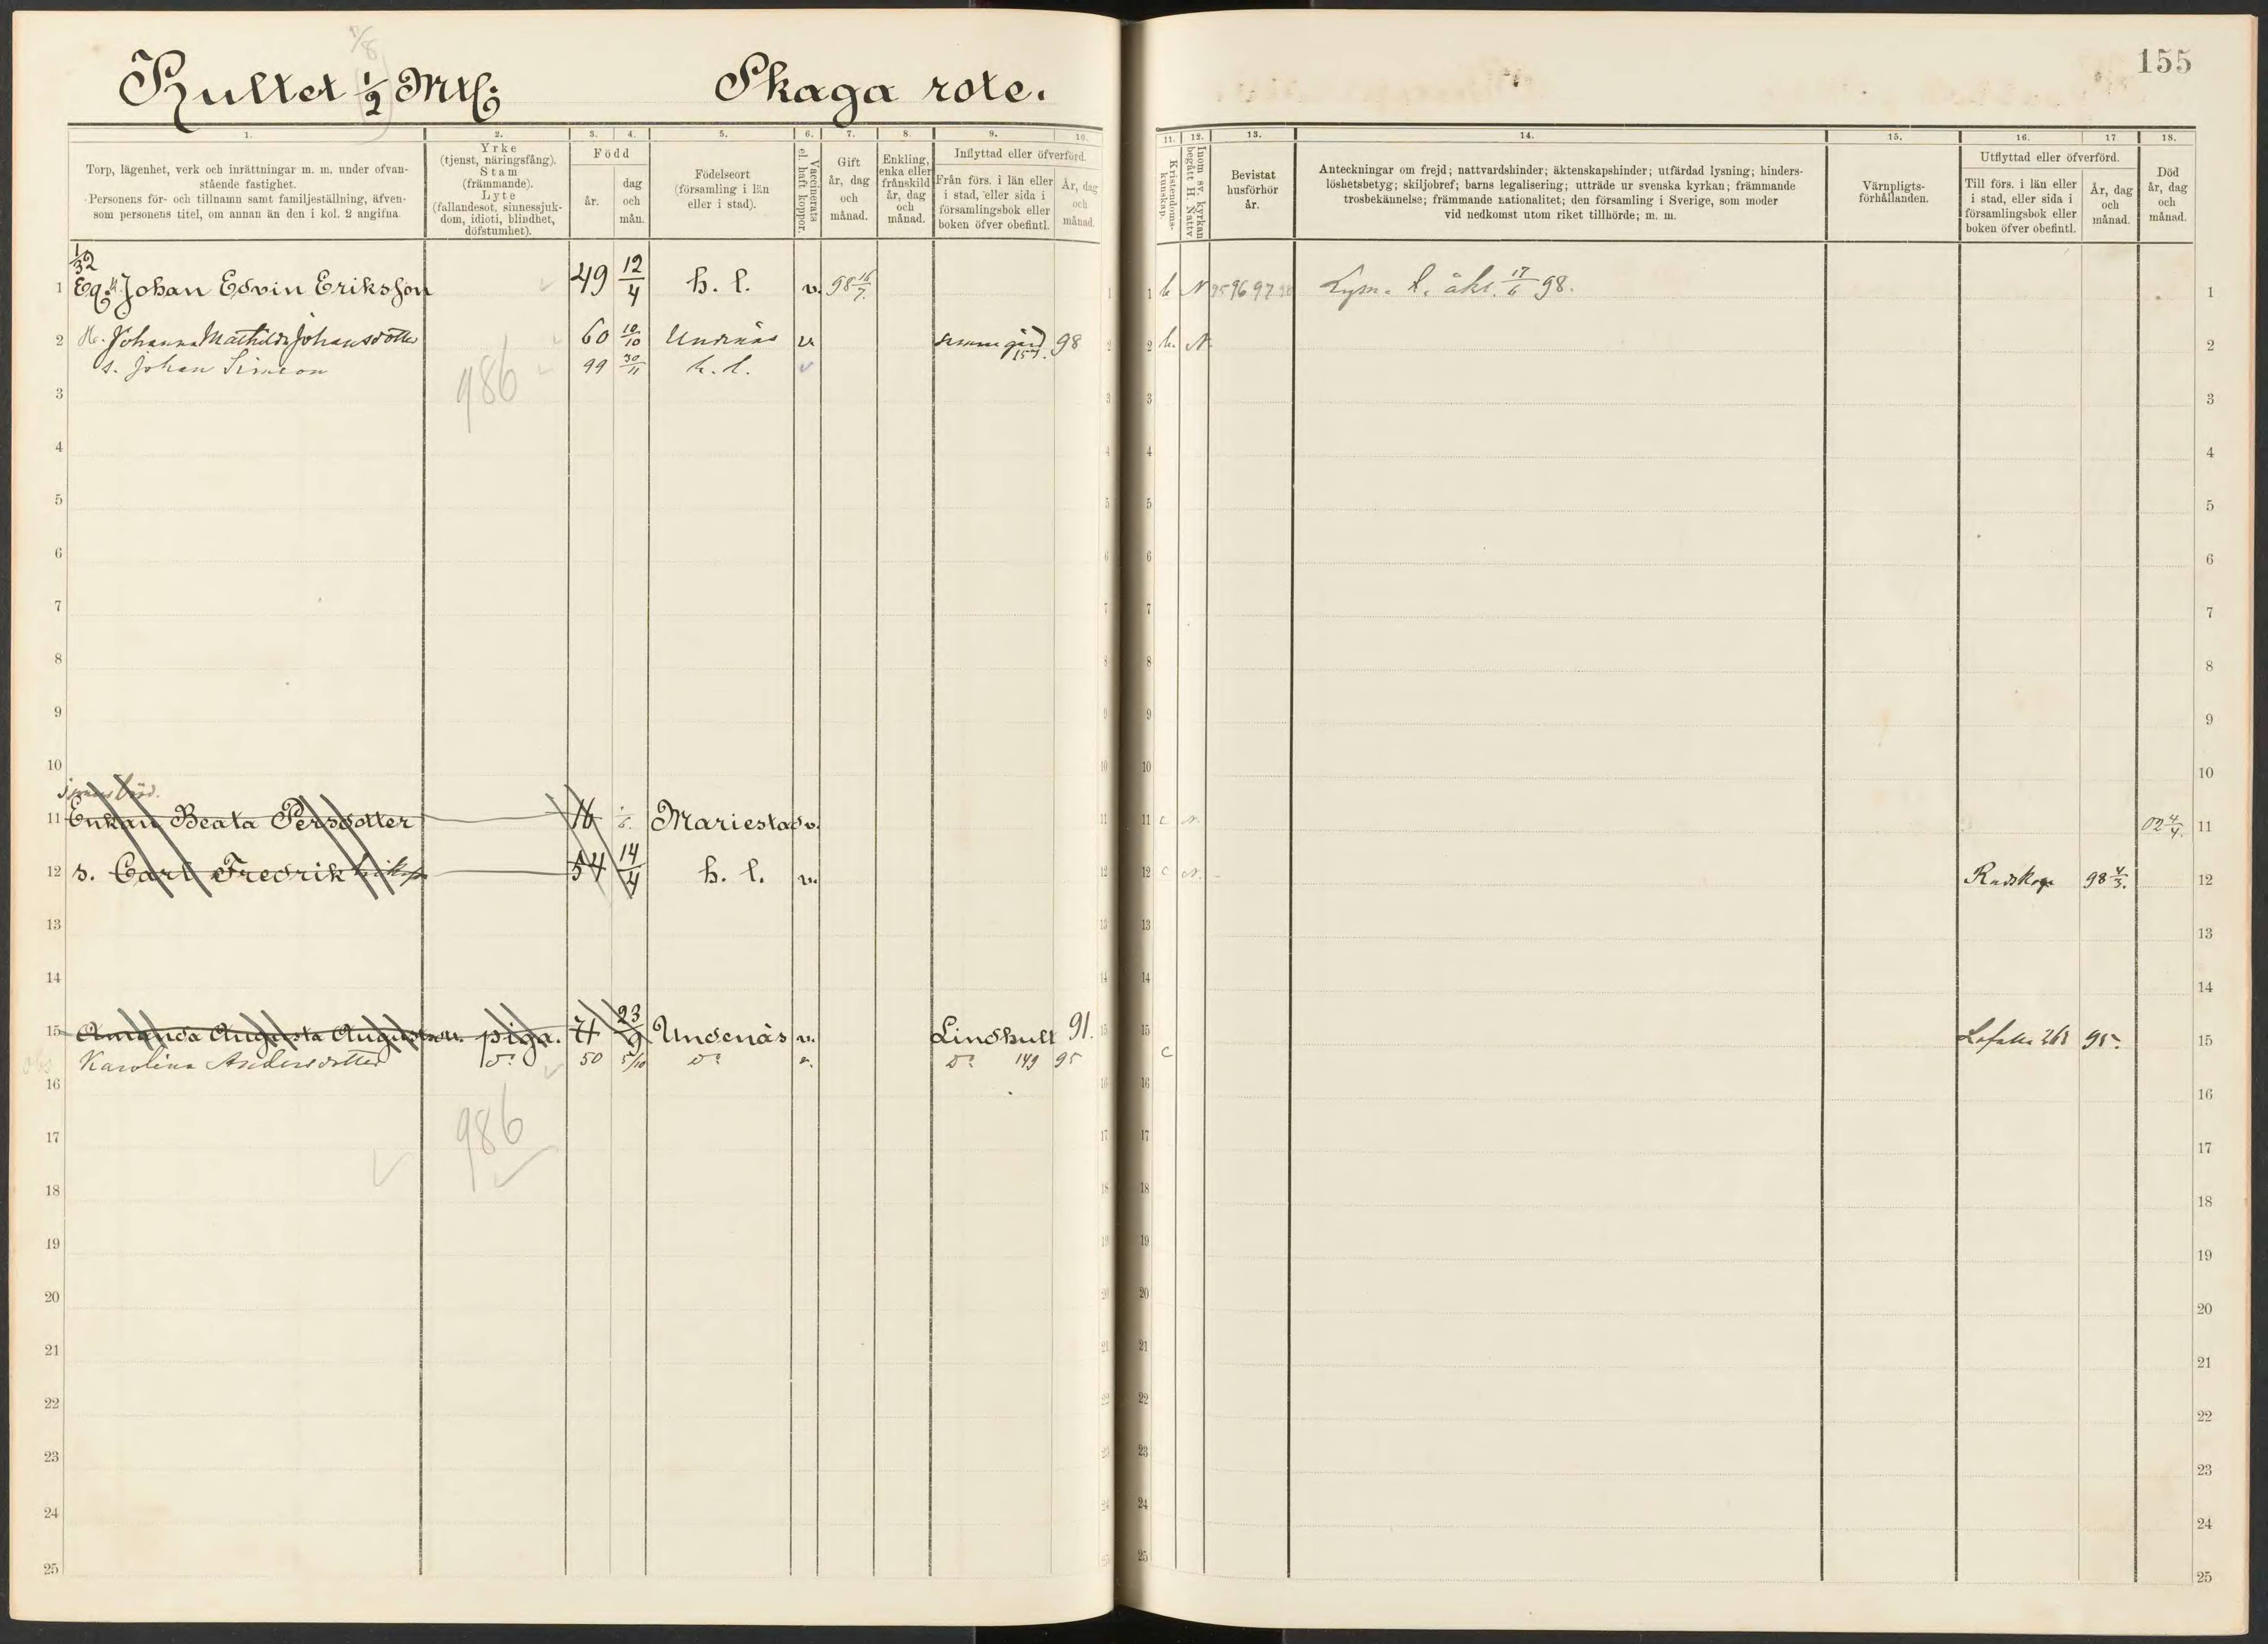 1/8
Kullet 1/2 Mtl:
Skaga rote.
155
1. 2. 3. 4. 5. 6. 7. 8. 9. 10. 11. 12. 13. 14. 15. 16. 17 18.
Torp, lägenhet, verk och inrättningar m. m. under ofvan-
stående fastighet.
Personens för- och tillnamn samt familjeställning, äfven-
som personens titel, om annan än den i kol. 2 angifna.
Yrke
(tjenst, näringsfång).
Stam
(främmande).
Lyte
(fallandesot, sinnessjuk-
dom, idioti, blindhet,
döfstumhet).
Född
år.
dag
och
mån.
Födelseort
(församling i län
eller i stad).
Vaccinerats
el. haft koppor.
Gift
år, dag
och
månad.
Enkling,
enka eller
frånskild
år, dag
och
månad.
Inflyttad eller öfverförd.
Från förs. i län eller
i stad, eller sida i
församlingsbok eller
boken öfver obefintl.
År, dag
och
månad.
Kristendoms-
kunskap.
Inom sv. kyrkan
begått H. Nattv
Bevistat
husförhör
år.
Anteckningar om frejd; nattvardshinder; äktenskapshinder; utfärdad lysning; hinders-
löshetsbetyg; skiljobref; barns legalisering; utträde ur svenska kyrkan; främmande
trosbekännelse; främmande nationalitet; den församling i Sverige, som moder
vid nedkomst utom riket tillhörde; m. m.
Värnpligts-
förhållanden.
Utflyttad eller öfverförd.
Till förs. i län eller
i stad, eller sida i
församlingsbok eller
boken öfver obefintl.
År, dag
och
månad.
Död
år, dag
och
månad.
1/32
1 Eg. Johan Edvin Eriksson 49 12/4 h. l. v. 98 16/7 b N 95 96 97 98 Lysn. t. äkt. 17/6 98. 1
2 H. Johanna Mathilda Johansdotter 60 10/10 Undenäs v 157. 98 b. N. 2
s. Johan Simeon 99 30/11 h. l. v
986
3 3
4 4
5 5
6 6
7 7
8 8
9 9
10 10
11 Enkan Beata Persdotter 16 Mariestad v. c N. 02 4/4. 11
12 s. Carl Fredrik 54 14/4 h. l. v. c N. Rudskoga 98 4/3. 12
13 13
14 14
15 Amanda Augusta piga. 74 23/9 Undenäs v. Lindhult 91. 95. 15
Karolina Andersdotter do 50 5/10 do v. do 149 95 c
16 16
986
17 17
18 18
19 19
20 20
21 21
22 22
23 23
24 24
25 25